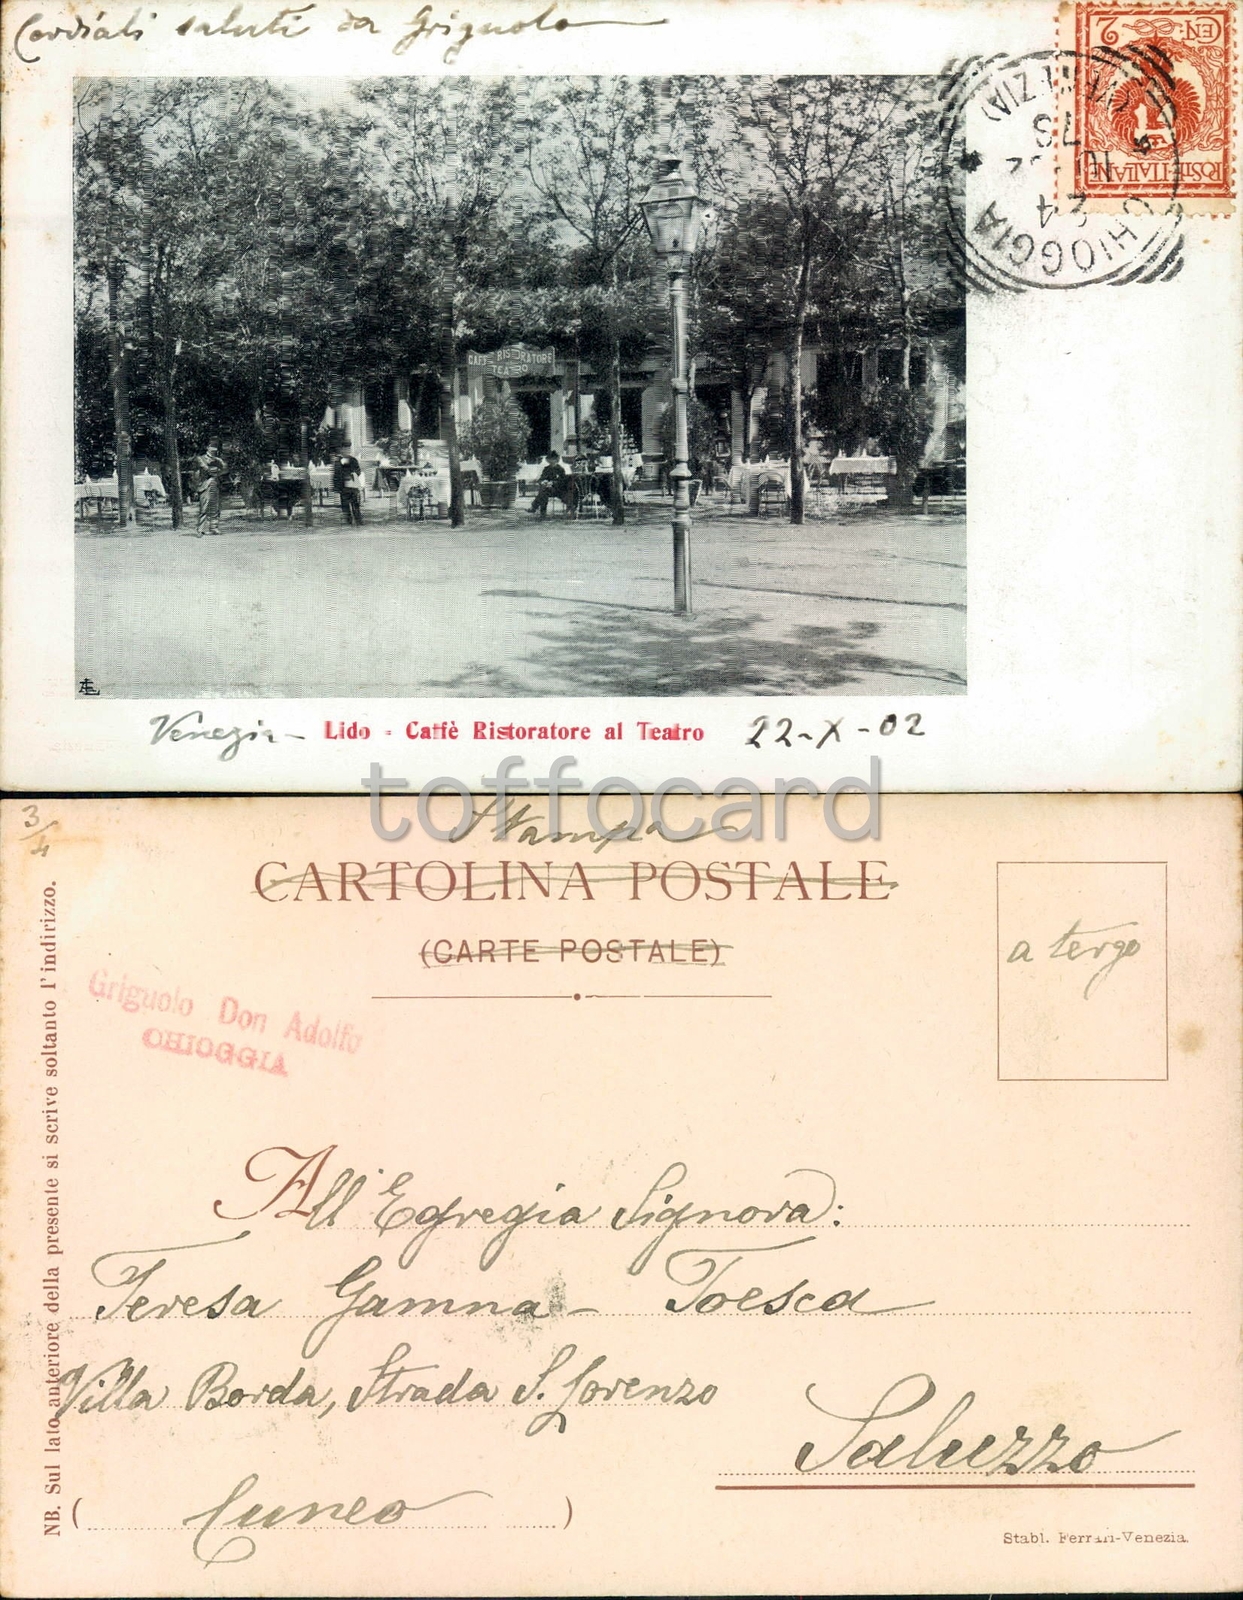 Cordiali saluti da Griguolo
CEN. 2
POSTE ITALIANE
CHIOGGIA
(VENEZIA)
24
CAFFÈ RISTORATORE
TEATRO
Venezia - Lido - Caffè Ristoratore al Teatro 22-X-02
toffocard
3/4
Stampa
CARTOLINA POSTALE
(CARTE POSTALE)
a tergo
NB. Sul lato anteriore della presente si scrive soltanto l'indirizzo.
Griguolo Don Adolfo
CHIOGGIA
All' Egregia Signora:
Teresa Gamna - Toesca
Villa Borda, Strada S. Lorenzo
Saluzzo
(Cuneo)
Stabl. Ferrari-Venezia.